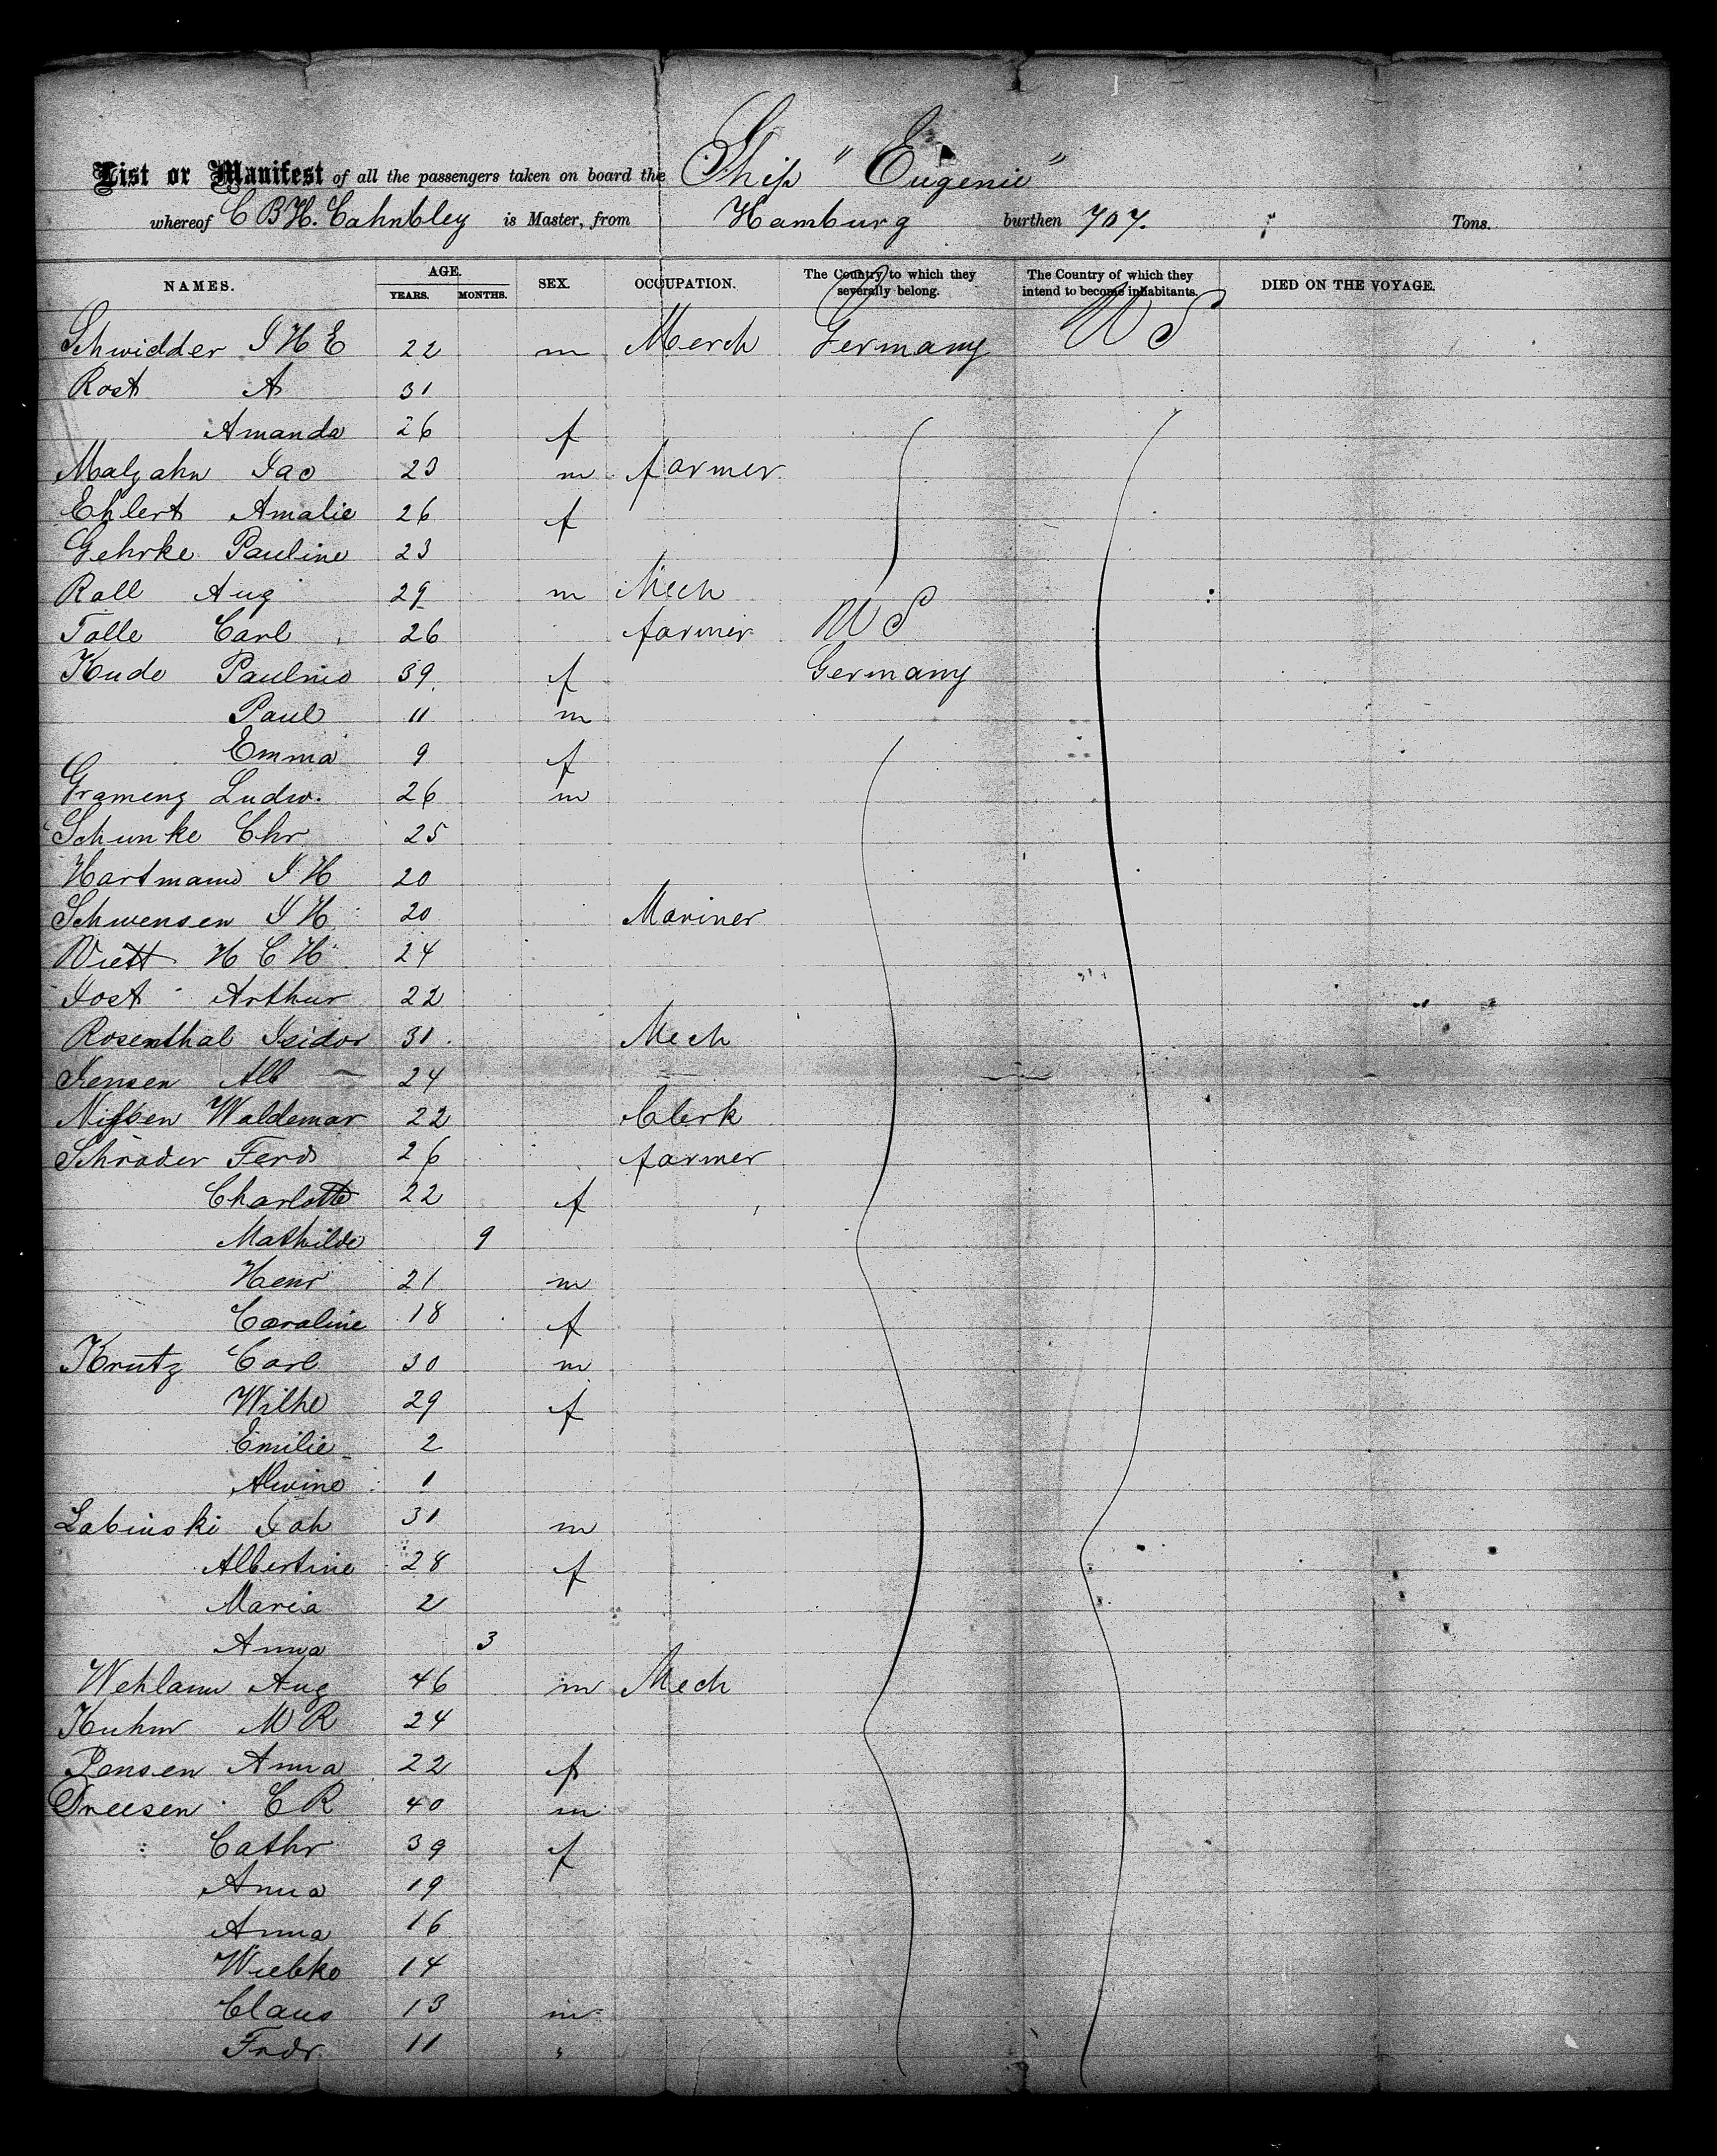 List or Manifest of all the passengers taken on board the Ship "Eugenie"
whereof C B H. Cahnbley is Master, from Hamburg burthen 707. Tons.
NAMES. AGE. YEARS. MONTHS. SEX. OCCUPATION. The Country to which they severally belong. The Country of which they intend to become inhabitants. DIED ON THE VOYAGE.
Schwidder J H E 22 m Merch Germany US
Rost A 31
Amanda 26 f
Malzahn Jac 23 m farmer
Ehlert Amalie 26 f
Gehrke Pauline 23
Rall Aug 29 m Mech
Tolle Carl 26 farmer US
Kude Pauline 39 f Germany
Paul 11 m
Emma 9 f
Gramenz Ludw. 26 m
Schunke Chr 25
Hartmann J H 20
Schwensen J H 20 Mariner
Viett H C H 24
Jost Arthur 22
Rosenthal Isidor 31 Mech
Jensen Alb — 24 —
Nissen Waldemar 22 Clerk
Schrader Ferd 26 farmer
Charlotte 22 f
Mathilde 9
Henr 21 m
Caroline 18 f
Krutz Carl 30 m
Wilhe 29 f
Emilie 2
Alwine 1
Labinski Joh 31 m
Albertine 28 f
Maria 2
Anna 3
Wehlann Aug 46 m Mech
Kuhn M R 24
Jensen Anna 22 f
Dreesen C R 40 m
Cathr 39 f
Anna 19
Anna 16
Wiebke 14
Claus 13 m
Frdr 11 "